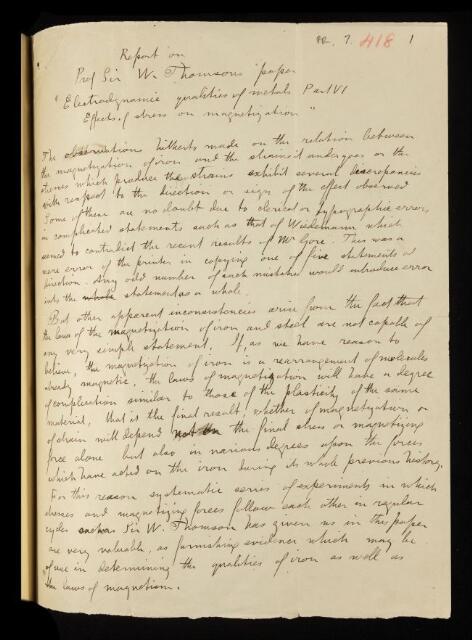 RR. 7. 418 1
Report on
Prof Sir W. Thomsons paper
"Electrodynamic qualities of metals Part VI
Effects of stress on magnetization"
The observations hitherto made on the relation between
the magnetization of iron and the strains it undergoes or the
stresses which produce the strains exhibit several discrepancies
with respect to the direction or sign of the effect observed
Some of these are no doubt due to clerical or typographic errors
in complicated statements such as that of Wiedemann which
seemed to contradict the recent results of Mr Gore. This was a
mere error of the printer in copying one of five statements of
direction. Any odd number of such mistakes would introduce error
into the whole statement as a whole.
But other apparent inconsistencies arise from the fact that
the laws of the magnetization of iron and steel are not capable of
any very simple statement. If, as we have reason to
believe, the magnetization of iron is a rearrangement of molecules
already magnetic, the laws of magnetization will have a degree
of complication similar to those of the plasticity of the same
material, that is the final result, whether of magnetization or
of strain will depend not on the final stress or magnetizing
force alone but also in various degrees upon the forces
which have acted on the iron during its whole previous history.
For this reason systematic series of experiments in which
stresses and magnetizing forces follow each other in regular
cycles such as Sir W. Thomson has given us in this paper
are very valuable, as furnishing evidence which may be
of use in determining the qualities of iron as well as
the laws of magnetism.